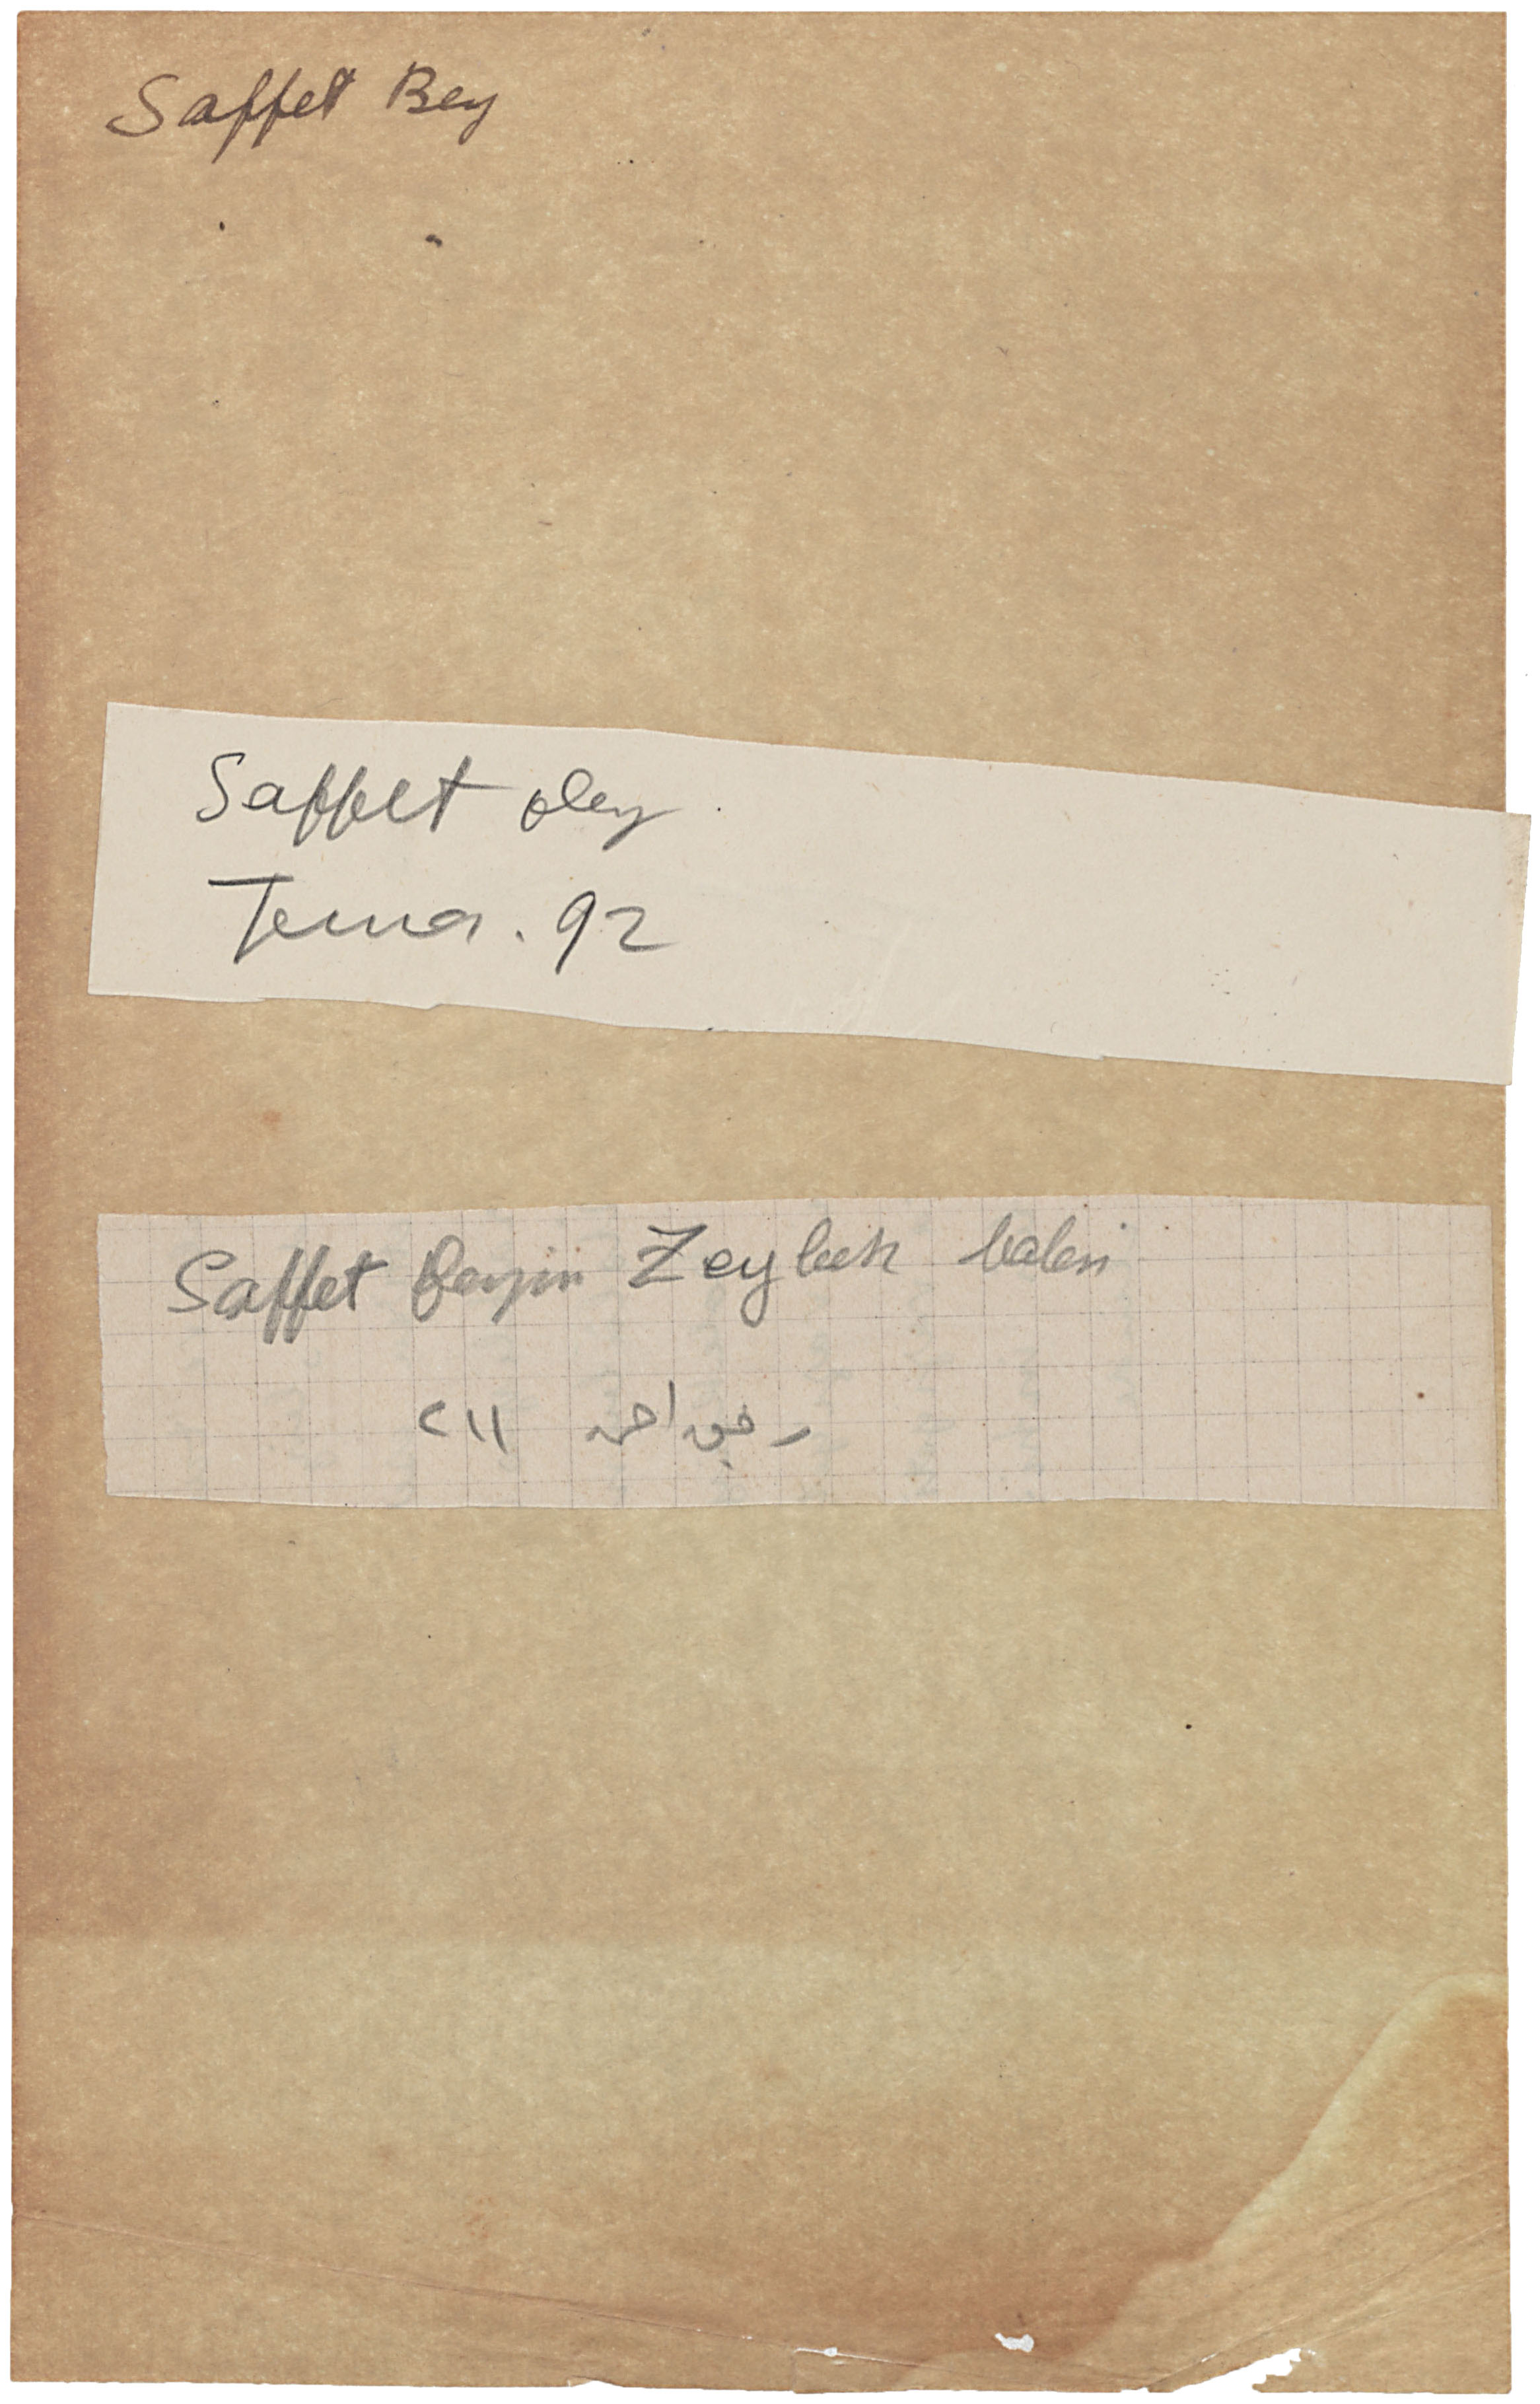 Saffet Bey
Saffet Bey
Tema. 92
Saffet Beyin Zeybek balesi
رفیق احمد ٢١١